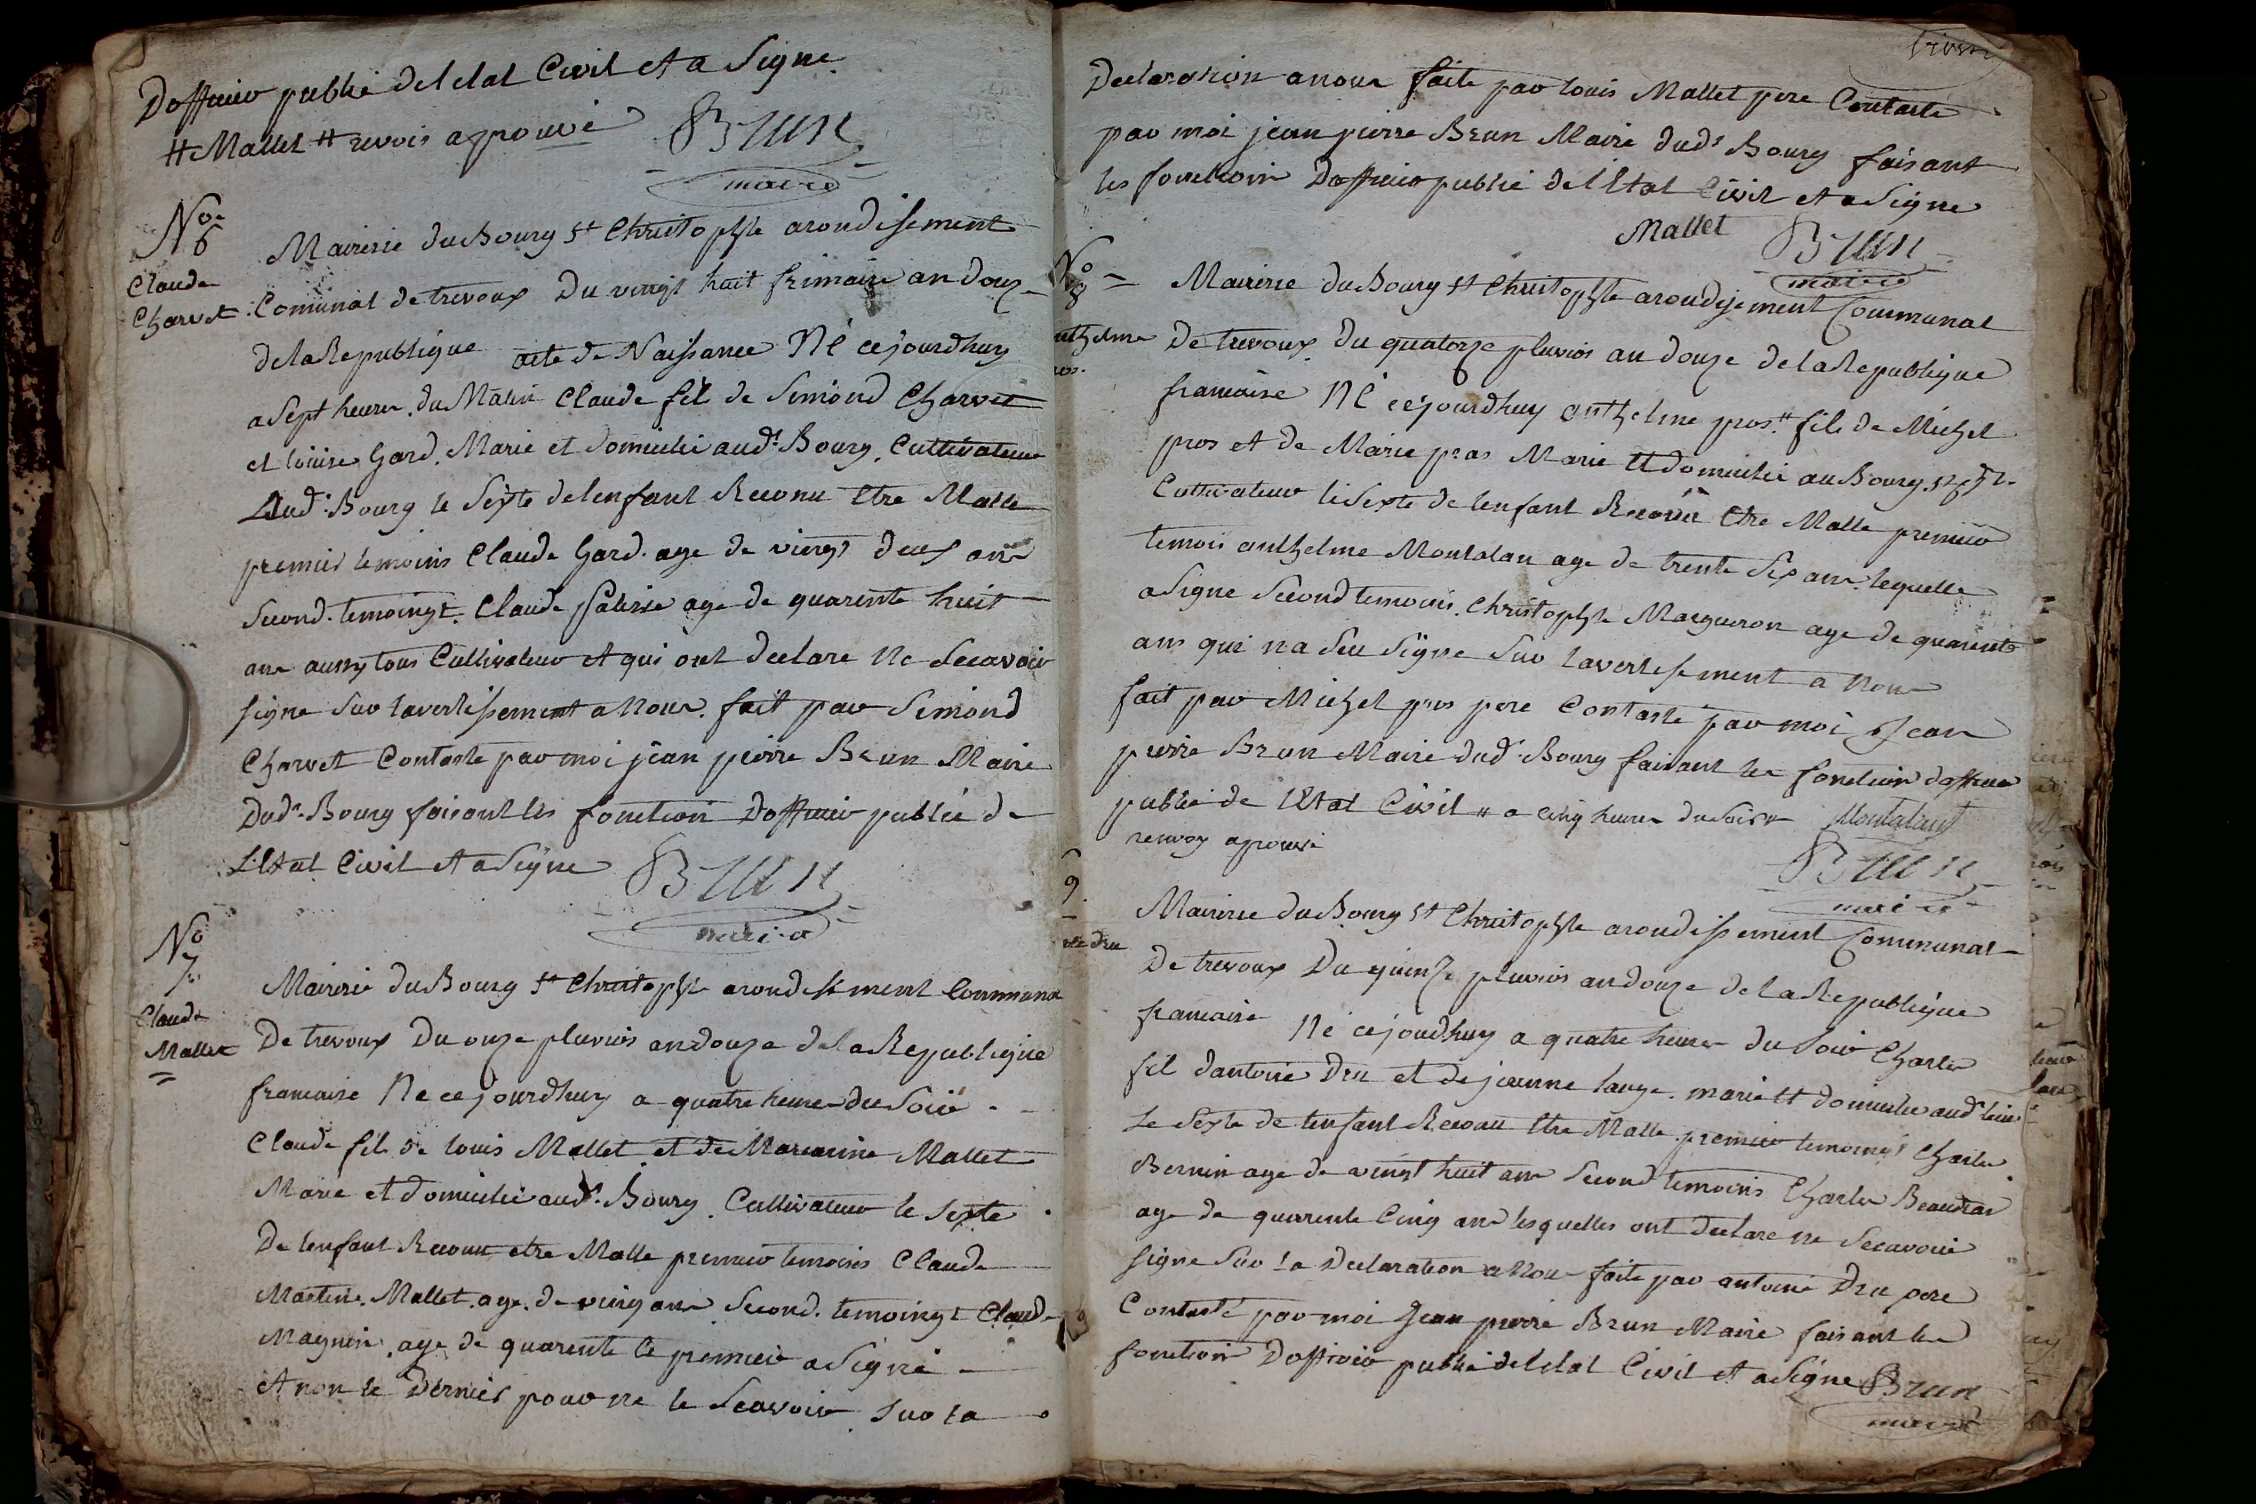 Dofficier publié de létat Civil et a Signe
# Mallet # renvois aprouvé
Brun
maire
No
6
Claude
Charvet
Mairerie du Bourg St Christophle arondissement
Comunal de trevoux Du vingt huit frimaire an douze
de la Republique acte de Naissance Né cejourdhuy
a Sept heures du Matin Claude fil de Simond Charvet
et louise Gard. Marié et domicilié aud.t Bourg. Cultivateur
Dud.t Bourg le Sexte de lenfant Reconu Etre Malle
premier temoins Claude Gard. age de vingt deux ans
Second. temoingt. Claude age de quarente huit
ans aussy tous Cultivateur et qui ont declare Ne Scavoir
signe Sur lavertissement a Nous. fait par Simond
Charvet Contasté par moi jean pierre Brun Maire
Dud.t Bourg faisant les fonction Dofficier publié de
LEtat Civil et a Signe
Brun
maire
No
7
Claude
Mallet
Mairerie du Bourg St Christophle arondissement Communal
De trevoux Du onze pluvios an douze de la Republique
francaise Ne cejourdhuy a quatre heures du Soir
Claude fil de louis Mallet et de Mallet
Marié et domicilié aud.t Bourg. Cultivateur le Sexte
De lenfant Reconu etre Malle premier temoins Claude
Mallet. age. de vingt ans Second. temoingt Claude
Magnin. age de quarente le premier a Signé
et non le Dernier pour ne le Scavoir Sur la
Declaration a nous faite par louis Mallet pere Contasté
par moi jean pierre Brun Maire dud.t Bourg faisant
les fonction Dofficier publié de lEtat Civil et a Signe
Mallet
Brun
maire
No
8
nthelme
ros.
Mairerie du Bourg St Christophle arondisement Communal
De trevoux Du quatorze pluvios an douze de la Republique
francaise Né cejourdhuy anthelme pros # fils de Michel
pros et de Marie pras Marié et domicilié au Bourg
Cultivateur le Sexte de lenfant Reconu Etre Malle premier
temois anthelme Montalan age de trente Six ans lequelle
a Signe Second temoins. Christophle Margueron age de quarente
ans qui na Seu Signe Sur lavertissement a Nous
fait par Michel pros pere Contasté par moi Jean
pierre Brun Maire dud.t Bourg faisant les fonction dofficier
publié de lEtat Civil # a cinq heures du Soir #
renvoy aprouvé
Montalant
Brun
maire
9
Dru
Mairerie du Bourg St Christophle arondissement Communal
De trevoux Du quinze pluvios an douze de la Republique
francaise Né cejourdhuy a quatre heures du Soir Charles
fil dantoine Dru et de jeanne lange. marié et domicilié aud.t lieu
Le Sexte de lenfant Reconu Etre Malle. premier temoingt Charles
Bernin age de vingt huit ans Second temoins Charles
age de quarente Cinq ans lesquelles ont declare ne Scavoir
signe Sur la Declaration a Nous faite par antoine Dru pere
Contasté par moi Jean pierre Brun Maire faisant les
fonction Dofficier publié de létat Civil et a Signe
Brun
maire